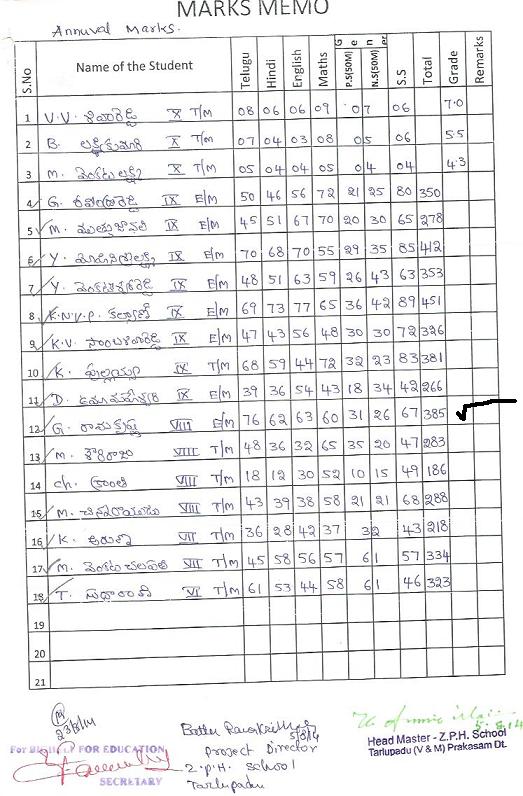 MARKS MEMO
Annuval Marks.
S.No Name of the Student Telugu Hindi English Maths P.S(50M) N.S(50M) Gener S.S Total Grade Remarks
1 V.V. X T/M 08 06 06 09 07 06 7.0
2 B. లక్ష్మీకుమారి X T/M 07 04 03 08 05 06 5.5
3 M. వెంకటలక్ష్మి X T/M 05 04 04 05 04 04 4.3
4 G. IX E/M 50 46 56 72 21 25 80 350
5 M. IX E/M 45 51 67 70 20 30 65 278
6 Y. IX E/M 70 68 70 55 29 35 85 412
7 Y. IX E/M 48 51 63 59 26 43 63 353
8 K.N.V.P. కళ్యాణి IX E/M 69 73 77 65 36 42 89 451
9 K.V. IX E/M 47 43 56 48 30 30 72 326
10 K. పుల్లయ్య IX T/M 68 59 44 72 32 23 83 381
11 D. ఉమామహేశ్వరి IX E/M 39 36 54 43 18 34 42 266
12 G. రామకృష్ణ VIII E/M 76 62 63 60 31 26 67 385
13 M. శౌరిరాజు VIII T/M 48 36 32 65 35 20 47 283
14 ch. క్రాంతి VIII T/M 18 12 30 52 10 15 49 186
15 M. VIII T/M 43 39 38 58 21 21 68 288
16 K. VII T/M 36 28 42 37 32 43 218
17 M. వెంకట చలపతి VII T/M 45 58 56 57 61 57 334
18 T. సుధారాణి VI T/M 61 53 44 58 61 46 323
19
20
21
23/8/14
FOR EDUCATION
SECRETARY
5/8/14
Project Director
Z.P.H. School
Tarlupadu
5.8.14
Head Master - Z.P.H. School
Tarlupadu (V & M) Prakasam Dt.